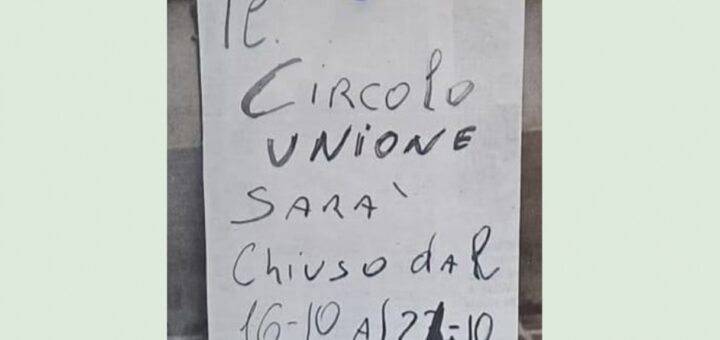 Il
CIRCOlO
UNIONE
SARA'
ChIUSO dAl
16-10 Al 21-10